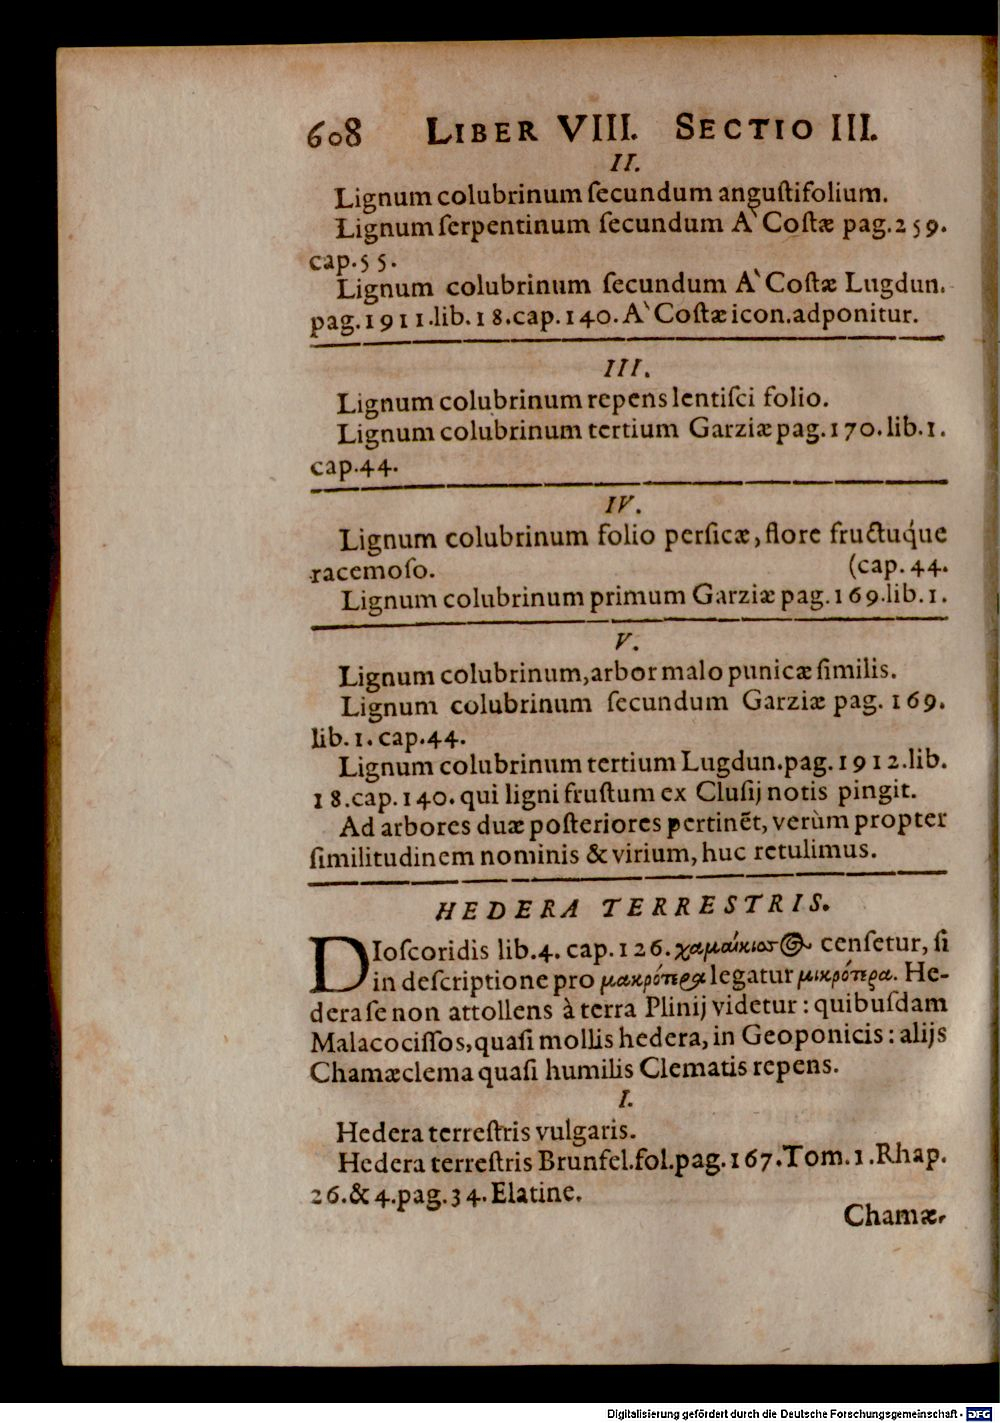 608 LIBER VIII. SECTIO III.
II.
Lignum colubrinum ſecundum anguſtifolium.
Lignum ſerpentinum ſecundum A` Coſtæ pag.259.
cap.55.
Lignum colubrinum ſecundum A` Coſtæ Lugdun.
pag.1911.lib.18.cap.140. A` Coſtæ icon.adponitur.
III.
Lignum colubrinum repens lentiſci folio.
Lignum colubrinum tertium Garziæ pag.170.lib.1.
cap.44.
IV.
Lignum colubrinum folio perſicæ, flore fructuq́ue
racemoſo. (cap.44.
Lignum colubrinum primum Garziæ pag.169.lib.1.
V.
Lignum colubrinum, arbor malo punicæ ſimilis.
Lignum colubrinum ſecundum Garziæ pag. 169.
lib.1.cap.44.
Lignum colubrinum tertium Lugdun.pag.1912.lib.
18.cap.140. qui ligni fruſtum ex Cluſij notis pingit.
Ad arbores duæ poſteriores pertinẽt, verùm propter
ſimilitudinem nominis & virium, huc retulimus.
HEDERA TERRESTRIS.
DIoſcoridis lib.4. cap.126. χαμαίκισσος cenſetur, ſi
in deſcriptione pro μακρότερα legatur μικρότερα. He-
dera ſe non attollens à terra Plinij videtur: quibuſdam
Malacociſſos, quaſi mollis hedera, in Geoponicis: alijs
Chamæclema quaſi humilis Clematis repens.
I.
Hedera terreſtris vulgaris.
Hedera terreſtris Brunfel.fol.pag.167.Tom.1.Rhap.
26.& 4.pag.34. Elatine.
Chamæ-
Digitalisierung gefördert durch die Deutsche Forschungsgemeinschaft - DFG